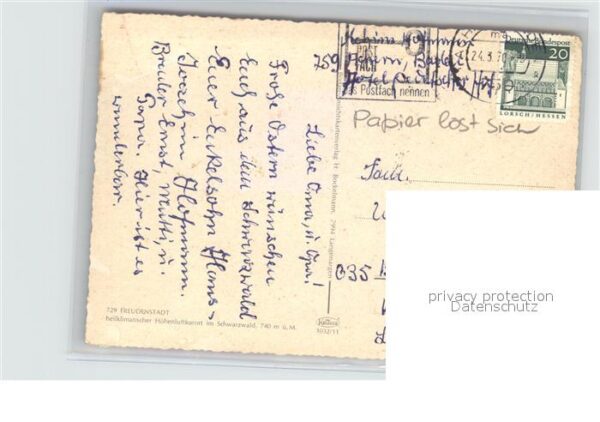 Liebe Oma, u. Opa!
Frohe Ostern wünschen
Euch aus dem Schwarzwald
Euer Enkelsohn Hans-
Joachim Hofmann.
Bruder Ernst, Mutti, u.
Papa. Hier ist es
wunderbar.
729 FREUDENSTADT
heilklimatischer Höhenluftkurort im Schwarzwald, 740 m ü. M.
Krüger
Ansichtskartenverlag H. Bockelmann, 7994 Langenargen
Hofmann
759 Achern, Baden
Hotel
als Postfach nennen
24.3.
Deutsche Bundespost
20
LORSCH/HESSEN
Papier löst sich
Fam.
035
privacy protection
Datenschutz